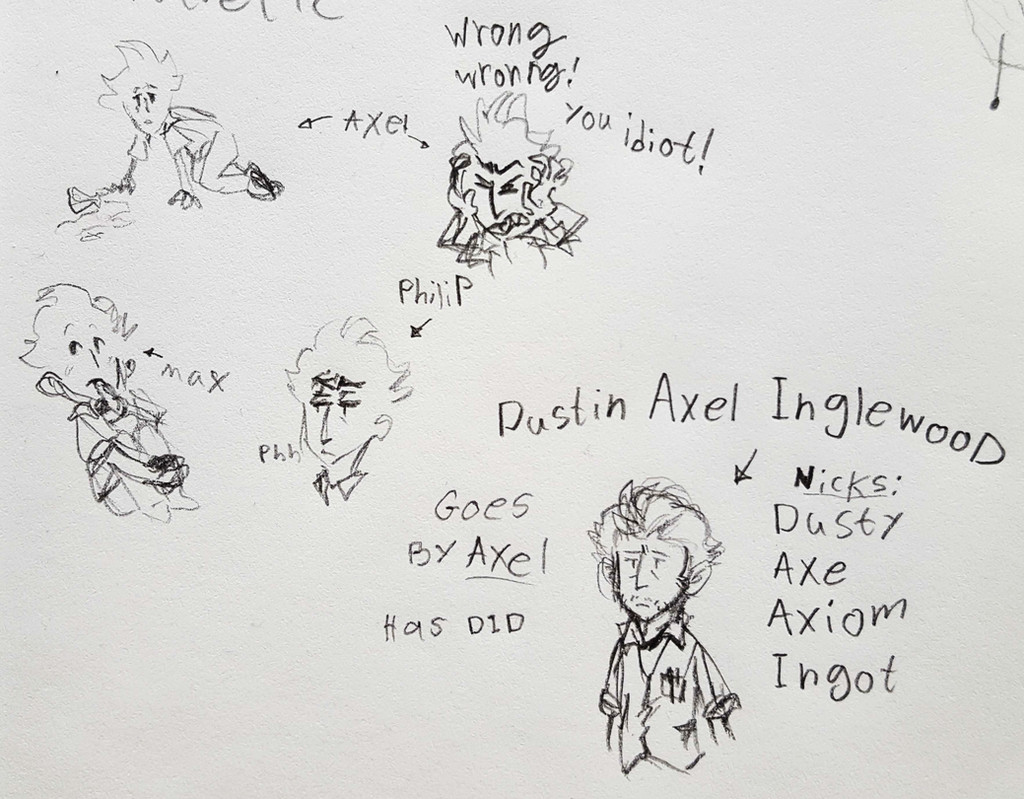 wrong
wronng!
You idiot!
AXel
PhiliP
max
Phh
Dustin Axel InglewooD
Goes
By Axel
Has DID
Nicks:
Dusty
Axe
Axiom
Ingot